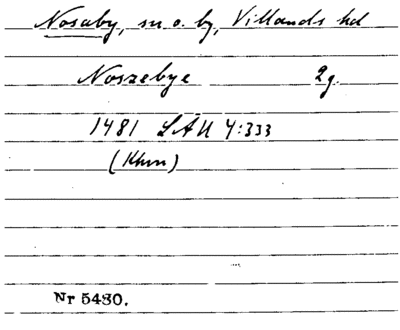 Nosaby, sn o. by, Villands hd
Noszebye 2g.
1481 LAU 4:333
(Khvn)
Nr 5480.